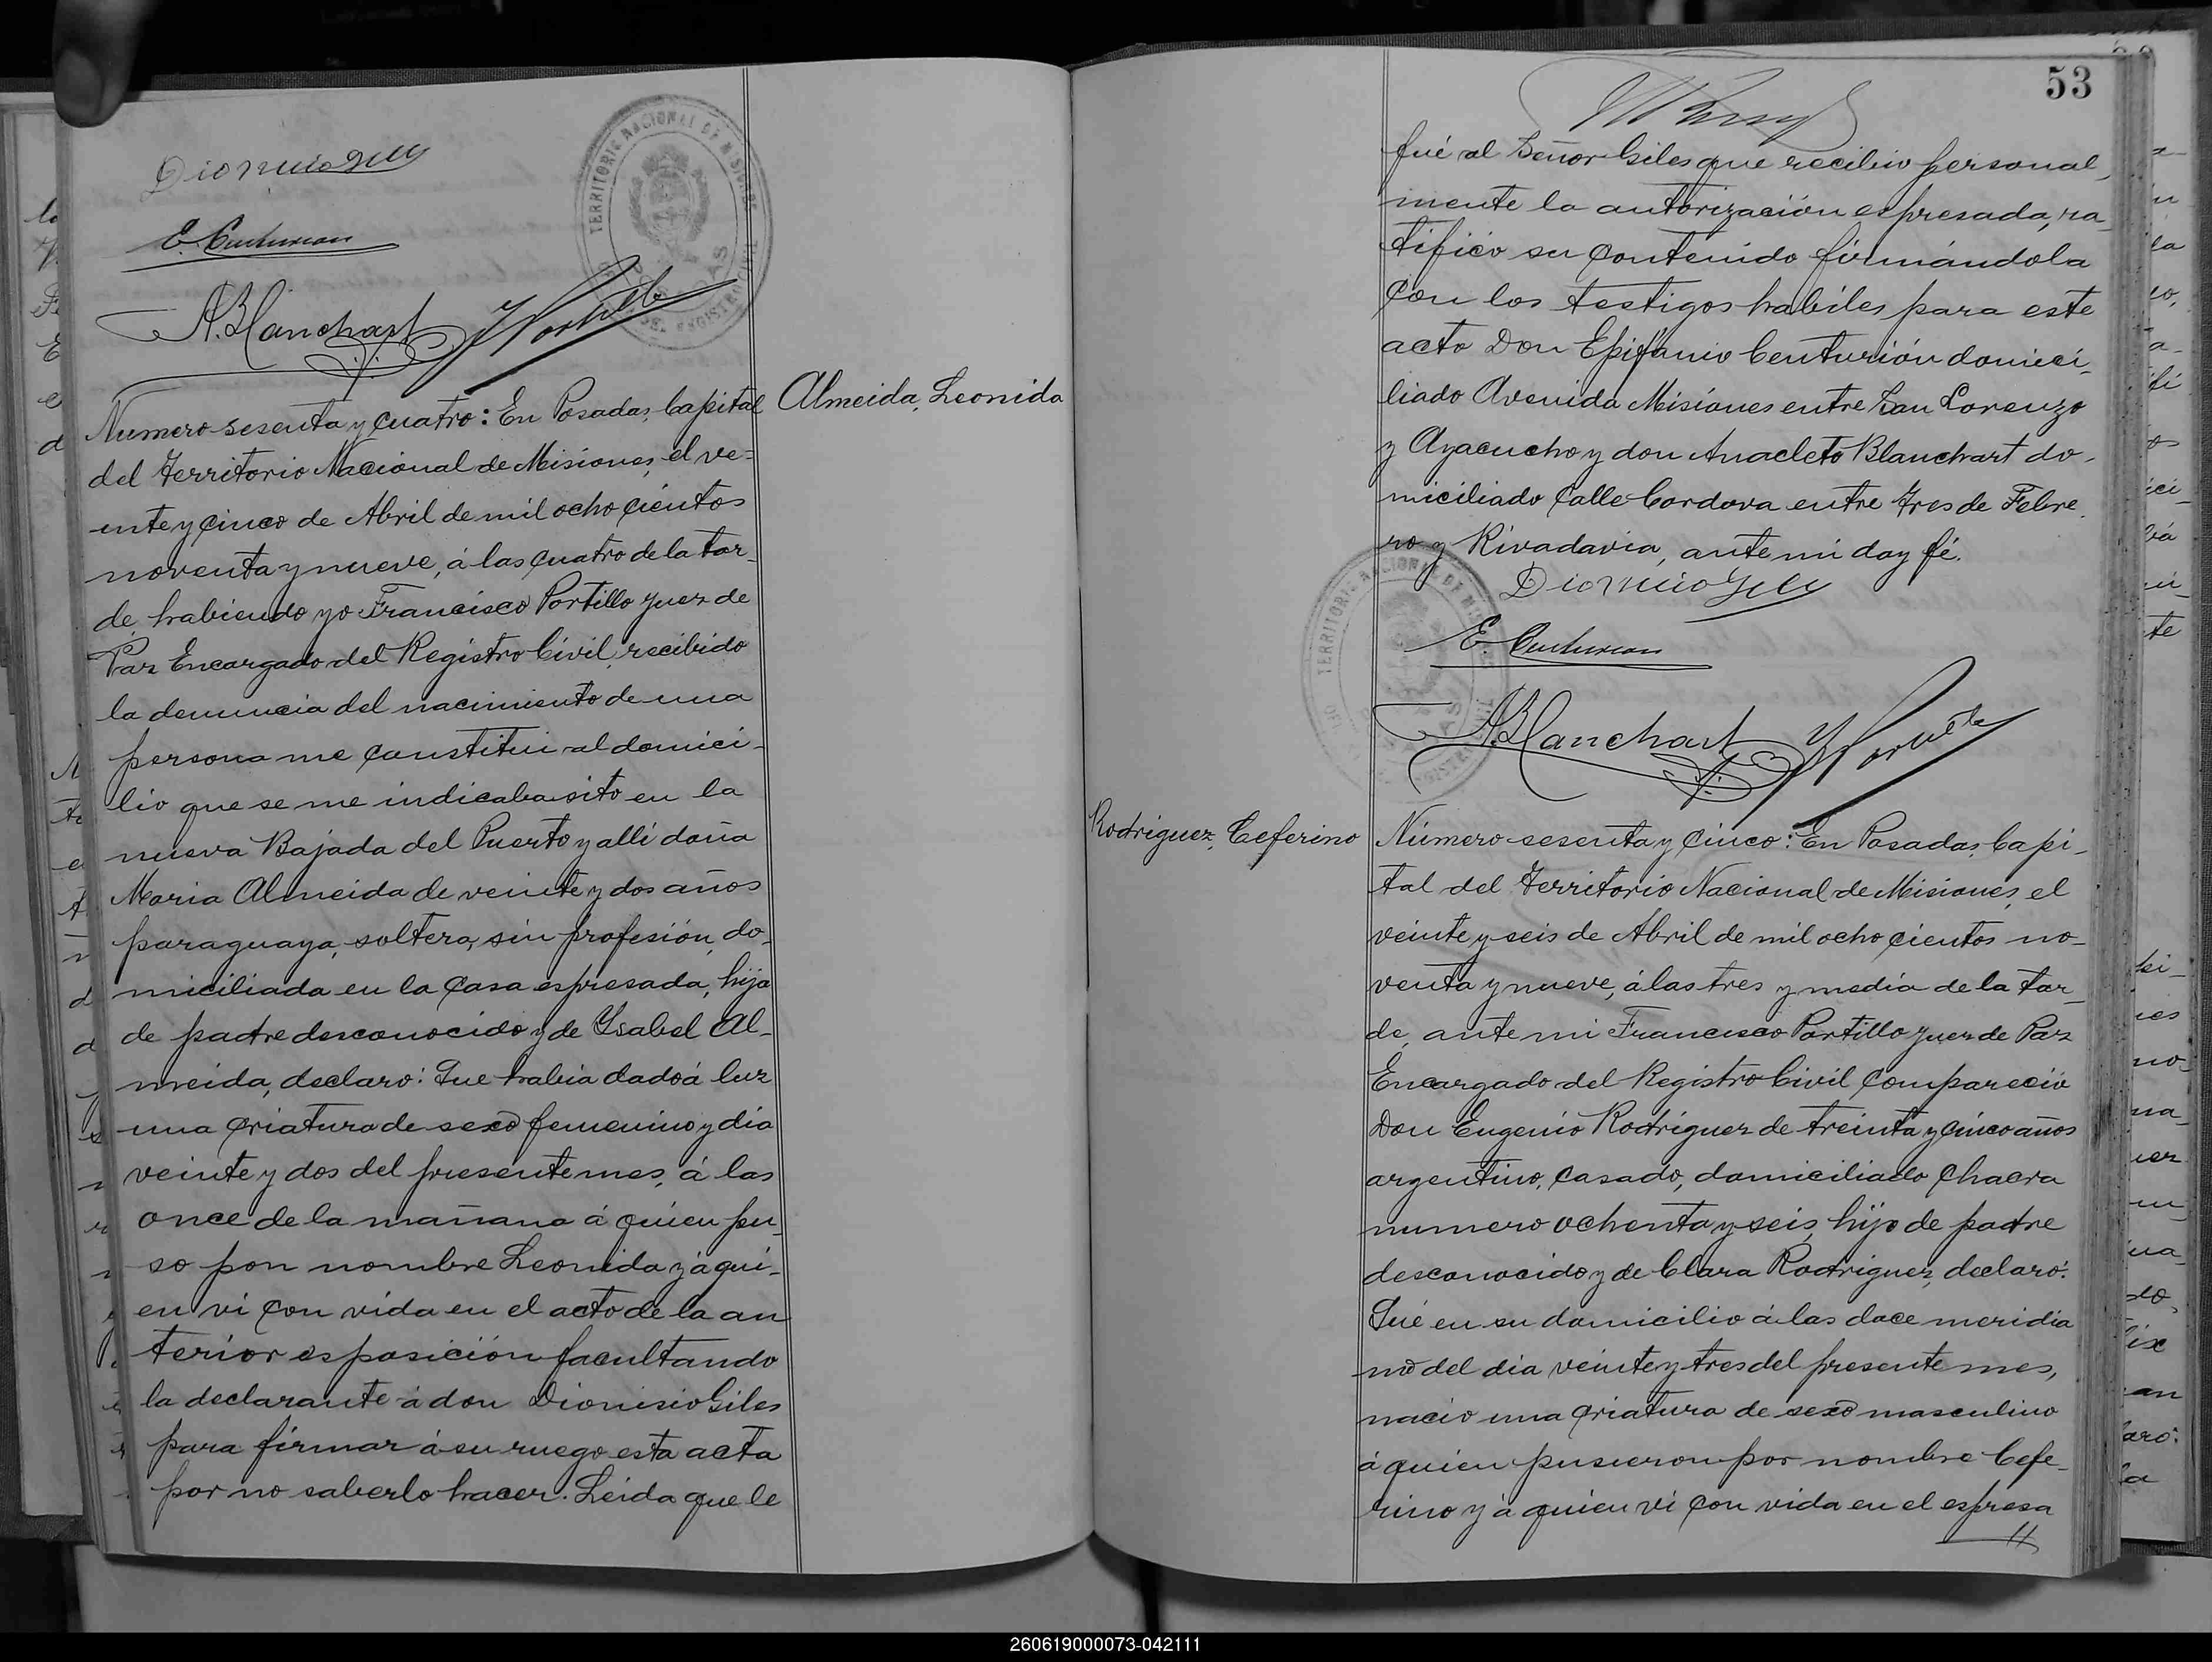 Dionisio Giles
E. Centurion
A. Blanchart
F Portillo
TERRITORIO NACIONAL DE MISIONES
Almeida, Leonida
Numero sesenta y cuatro: En Posadas, Capital
del Territorio Nacional de Misiones, el ve=
inte y cinco de Abril de mil ocho cientos
noventa y nueve, á las cuatro de la tar_
de, habiendo yo Francisco Portillo Juez de
Paz Encargado del Registro Civil, recibido
la denuncia del nacimiento de una
persona me constitui al domici_
lio que se me indicaba sito en la
nueva Bajada del Puerto y alli doña
Maria Almeida de veinte y dos años
paraguaya, soltera, sin profesión, do_
miciliada en la casa espresada, hija
de padre desconocido y de Ysabel Al_
meida, declaro: Que habia dado á luz
una criatura de sexo femenino y dia
veinte y dos del presente mes, á las
once de la mañana á quien pu_
so pon nombre Leonida y á qui_
en vi con vida en el acto de la an
terior esposición facultando
la declarante á don Dionisio Giles
para firmar á su ruego esta acta
por no saberlo hacer. Leida que le
53
fué al Señor Giles que recibio personal_
mente la autorización espresada, ra_
tificó su contenido firmándola
con los testigos habiles para este
acto Don Epifanio Centurión domici_
liado Avenida Misiones entre San Lorenzo
y Ayacucho y don Anacleto Blanchart do_
miciliado Calle Cordova entre Tres de Febre_
ro y Rivadavia, ante mi doy fé.
Dionisio Giles
E. Centurion
A. Blanchart
F Portillo
TERRITORIO NACIONAL DE MISIONES
Rodriguez, Ceferino
Número sesenta y cinco: En Posadas, Capi_
tal del Territorio Nacional de Misiones, el
veinte y seis de Abril de mil ocho cientos no_
venta y nueve, á las tres y media de la tar_
de, ante mi Francisco Portillo Juez de Paz
Encargado del Registro Civil compareció
Don Eugenio Rodriguez de treinta y cinco años
argentino, casado, domiciliado chacra
numero ochenta y seis, hijo de padre
desconocido y de Clara Rodriguez, declaró:
Qué en su domicilio á las doce meridia
no del dia veinte y tres del presente mes,
nacio una criatura de sexo masculino
á quien pusieron por nombre Cefe_
rino y á quien vi con vida en el espresa
260619000073-042111